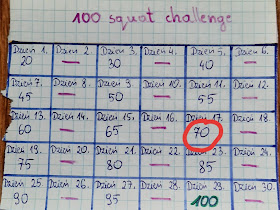 100 squat challenge
Dzień 1. Dzień 2. Dzień 3. Dzień 4. Dzień 5. Dzień 6.
20 — 30 — 40 —
Dzień 7. Dzień 8. Dzień 9. Dzień 10. Dzień 11. Dzień 12.
45 — 50 — 55 —
Dzień 13. Dzień 14. Dzień 15. Dzień 16. Dzień 17. Dzień 18.
60 — 65 — 70 —
Dzień 19. Dzień 20. Dzień 21. Dzień 22. Dzień 23. Dzień 24.
75 — 80 — 85 —
Dzień 25. Dzień 26. Dzień 27. Dzień 28. Dzień 29. Dzień 30.
90 — 95 — 100 —